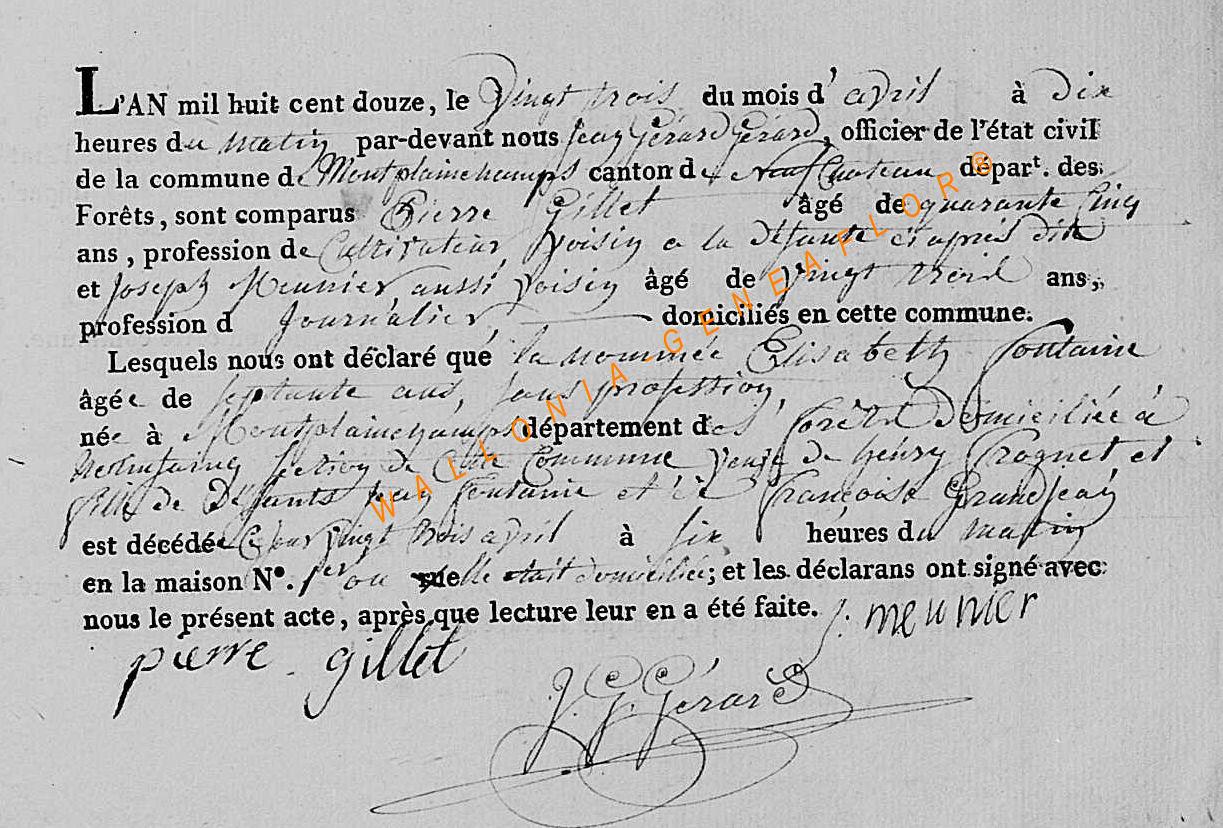 L'AN mil huit cent douze, le Vingt trois du mois d'avril à dix
heures du matin par-devant nous Jean Gérard Gérard, officier de l'état civil
de la commune de Montplainchamps canton de Neufchateau départ. des
Forêts, sont comparus Pierre Gillet âgé de quarante cinq
ans, profession de Cultivateur, Voisin a la défunte ci après dite
et Joseph Meunier, aussi Voisin âgé de Vingt trois ans,
profession d Journalier, domiciliés en cette commune.
Lesquels nous ont déclaré que la nommée Elisabeth fontaine
âgée de septante ans, sans profession,
née à Montplainchamps département des forêts Domiciliée à
section de Cette Commune Veuve de henry Croquet et
fille de Défunts Jean fontaine et de françoise Grandjean
est décédée Ce jour Vingt trois avril à six heures du matin
en la maison N°. 1er ou elle était domiciliée; et les déclarans ont signé avec
nous le présent acte, après que lecture leur en a été faite. J. meunier
pierre gillet
J. G. Gérard
WALLONIA-GENEAFLOR®